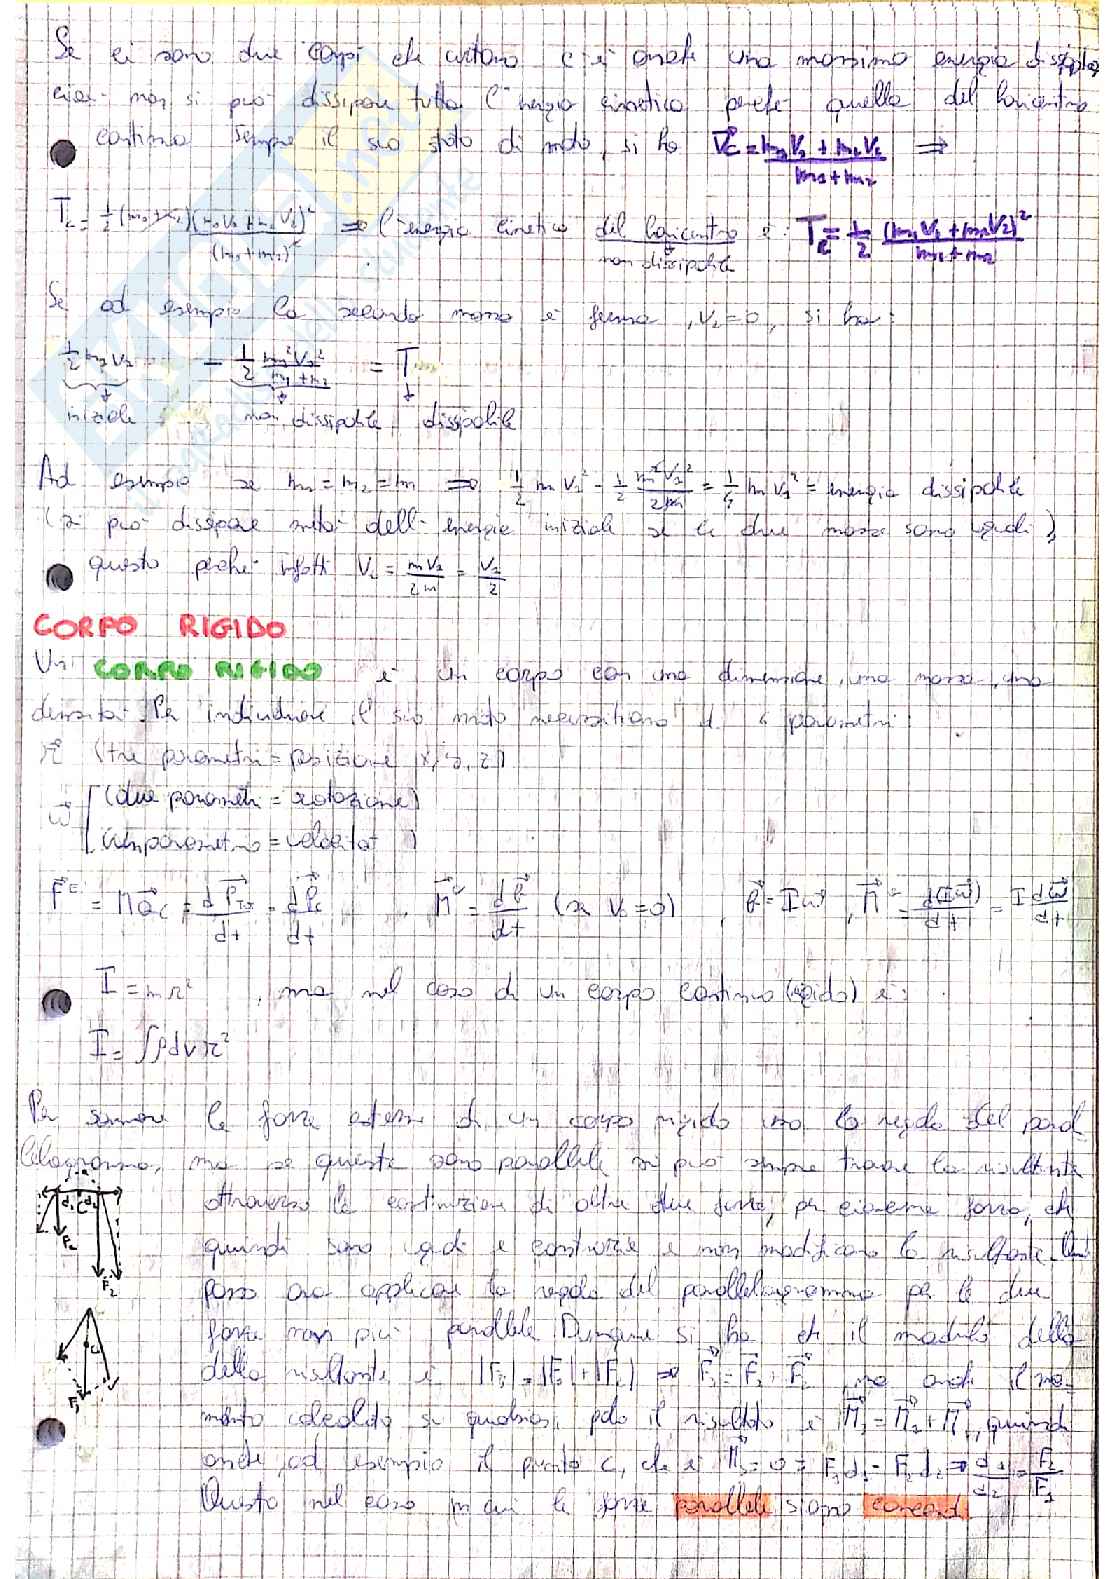 Se ci sono due corpi che urtano c'è anche una massima energia dissipata
cioè non si può dissipare tutta l'energia cinetica perché quella del baricentro
continua sempre il suo stato di moto, si ha V⃗c = (m₁V₁ + m₂V₂)/(m₁+m₂) ⇒
Tc = 1/2 (m₁+m₂) (m₁V₁+m₂V₂)²/(m₁+m₂)² ⇒ l'energia cinetica del baricentro è: Tc = 1/2 (m₁V₁+m₂V₂)²/(m₁+m₂)
non dissipabile
Se ad esempio la seconda massa è ferma, V₂=0, si ha:
1/2 m₁V₁ - 1/2 m₁²V₁²/(m₁+m₂) = T
iniziale non dissipabile dissipabile
Ad esempio se m₁=m₂=m ⇒ 1/2 m V₁² - 1/2 m²V₁²/2m = 1/4 m V₁² = energia dissipabile
(si può dissipare metà dell'energia iniziale se le due masse sono uguali),
questo perché infatti Vc = mV₁/2m = V₁/2
CORPO RIGIDO
Un CORPO RIGIDO è un corpo con una dimensione, una massa, una
densità. Per individuare il suo moto necessitiamo di 6 parametri:
r⃗ (tre parametri = posizione x, y, z)
ω⃗ [(due parametri = rotazione)
(un parametro = velocità)
F⃗ᴱ = M a⃗c = dP⃗tot/dt = dP⃗c/dt , M⃗ᴱ = db⃗/dt (se V₀=0) , b⃗ = Iω⃗ , M⃗ᴱ = d(Iω⃗)/dt = I dω⃗/dt
I = mr² , ma nel caso di un corpo continuo (rigido) è:
I = ∫ρdVr²
Per sommare le forze esterne di un corpo rigido uso la regola del paral
lelogramma, ma se queste sono parallele si può sempre trovare la risultante
attraverso la costruzione di altre due forze, per ciascuna forza, che
quindi sono uguali e contrarie e non modificano la risultante.
posso ora applicare la regola del parallelogramma per le due
forze non più parallele. Dunque si ha che il modulo della
della risultante è |F₃| = |F₁| + |F₂| ⇒ F⃗₃ = F⃗₁ + F⃗₂ ma anche il mo-
mento calcolato su qualsiasi polo il risultato è M⃗₃ = M⃗₂ + M⃗₁, quindi
anche, ad esempio il punto C, che è M⃗₃ = 0 = F₁d₁ - F₂d₂ ⇒ d₁/d₂ = F₂/F₁
Questo nel caso in cui le forze parallele siano concordi.
d₁ C d₂
F₁
F₂
C
F₃